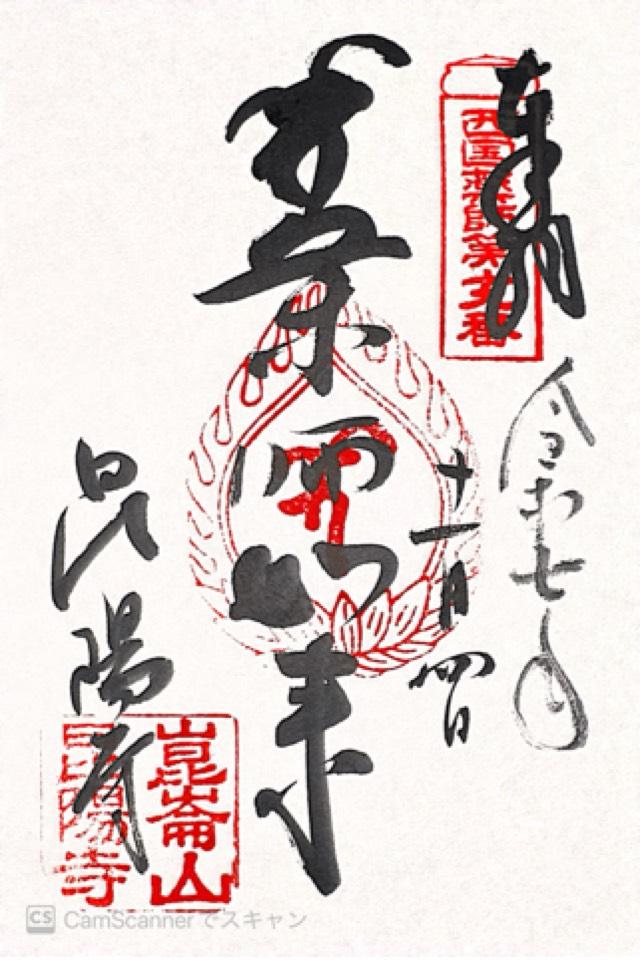 奉拝
西国薬師第十九番
令和七年
十一月四日
薬師如来
昆陽寺
崑崙山
昆陽寺
CS CamScanner でスキャン